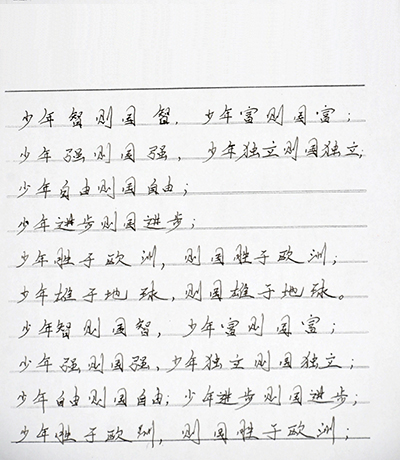 少年智则国智，少年富则国富；
少年强则国强，少年独立则国独立；
少年自由则国自由；
少年进步则国进步；
少年胜于欧洲，则国胜于欧洲；
少年雄于地球，则国雄于地球。
少年智则国智，少年富则国富；
少年强则国强，少年独立则国独立；
少年自由则国自由；少年进步则国进步；
少年胜于欧洲，则国胜于欧洲；